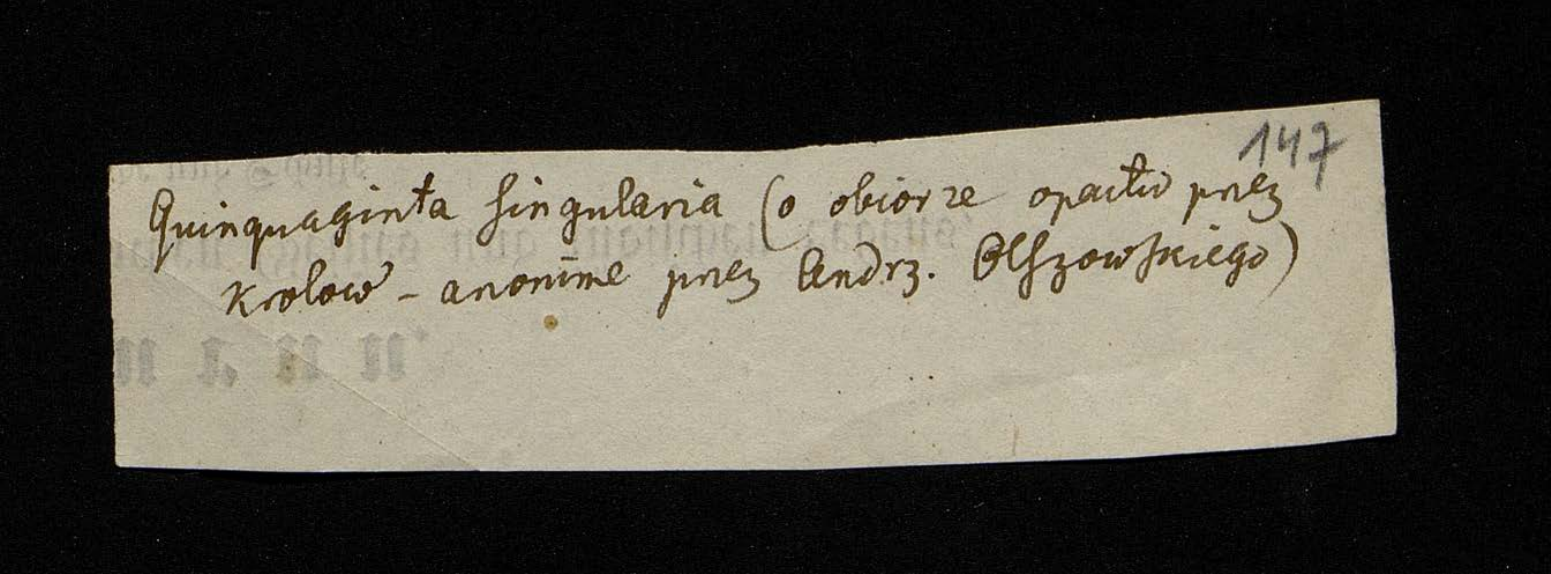 147
Quinquaginta singularia (o obiorze opactw przez
Krolow - anonime przez Andrz. Olszowskiego)